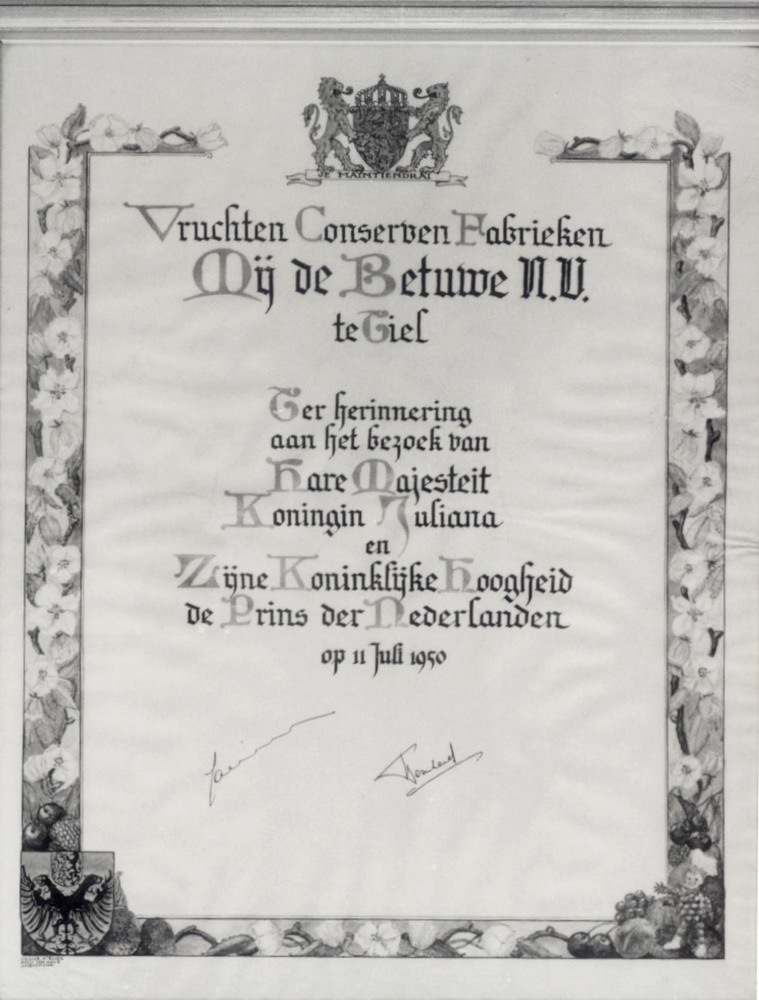 JE MAINTIENDRAI
Vruchten Conserven Fabrieken
Mij de Betuwe N.V.
te Tiel
Ter herinnering
aan het bezoek van
Hare Majesteit
Koningin Juliana
en
Zijne Koninklijke Hoogheid
de Prins der Nederlanden
op 11 Juli 1950
Juliana
Bernhard